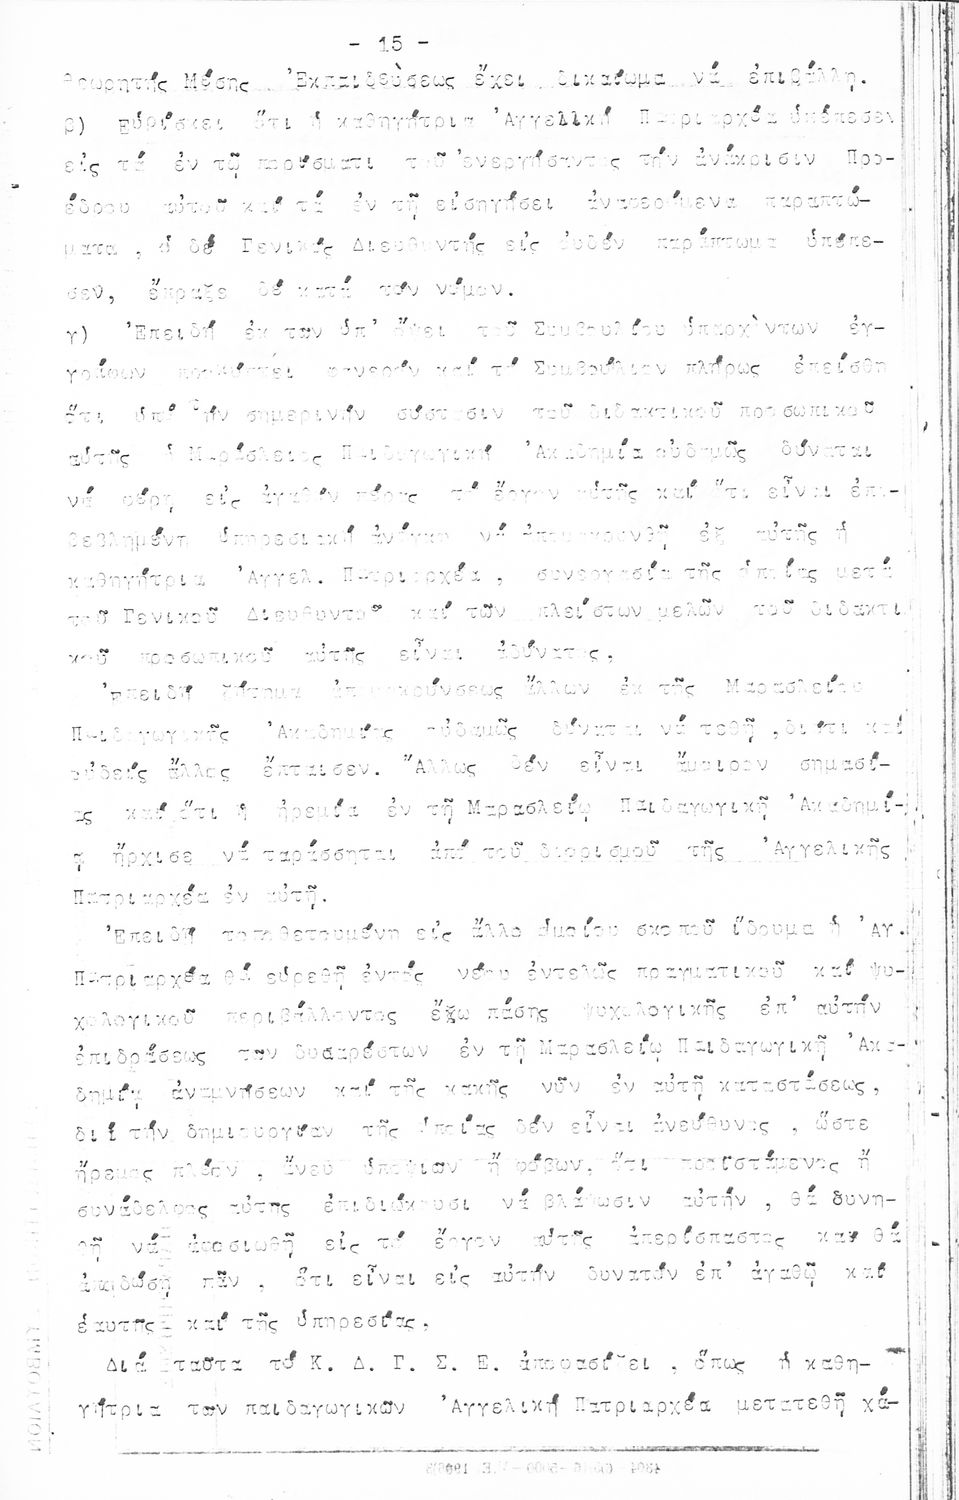 - 15 -
θεωρητής Μέσης Ἐκπαιδεύσεως ἔχει δικαίωμα νά ἐπιβάλλῃ.
β) Εὑρίσκει ὅτι ἡ καθηγήτρια Ἀγγελική Πατριαρχέα ὑπέπεσεν
εἰς τά ἐν τῷ πορίσματι τοῦ ἐνεργήσαντος τήν ἀνάκρισιν Προ-
έδρου αὐτοῦ καί τά ἐν τῇ εἰσηγήσει ἀναφερόμενα παραπτώ-
ματα , ὁ δέ Γενικός Διευθυντής εἰς οὐδέν παράπτωμα ὑπέπε-
σεν, ἔπραξε δέ κατά τόν νόμον.
γ) Ἐπειδή ἐκ τῶν ὑπ' ὄψει τοῦ Συμβουλίου ὑπαρχόντων ἐγ-
γράφων προκύπτει φανερόν καί τό Συμβούλιον πλήρως ἐπείσθη
ὅτι ὑπό τήν σημερινήν σύστασιν τοῦ διδακτικοῦ προσωπικοῦ
αὐτῆς ἡ Μαράσλειος Παιδαγωγική Ἀκαδημία οὐδαμῶς δύναται
νά φέρῃ εἰς ἀγαθόν πέρας τό ἔργον αὐτῆς καί ὅτι εἶναι ἐπι-
βεβλημένη ὑπηρεσιακή ἀνάγκη νά ἀπομακρυνθῇ ἐξ αὐτῆς ἡ
καθηγήτρια Ἀγγελ. Πατριαρχέα , συνεργασία τῆς ὁποίας μετά
τοῦ Γενικοῦ Διευθυντοῦ καί τῶν πλείστων μελῶν τοῦ διδακτι
κοῦ προσωπικοῦ αὐτῆς εἶναι ἀδύνατος,
Ἐπειδή ζήτημα ἀπομακρύνσεως ἄλλων ἐκ τῆς Μαρασλείου
Παιδαγωγικῆς Ἀκαδημίας οὐδαμῶς δύναται νά τεθῇ ,διότι καί
οὐδείς ἄλλος ἔπταισεν. Ἄλλως δέν εἶναι ἄμοιρον σημασί-
ας καί ὅτι ἡ ἠρεμία ἐν τῇ Μαρασλείῳ Παιδαγωγικῇ Ἀκαδημί-
ᾳ ἤρχισε νά ταράσσηται ἀπό τοῦ διορισμοῦ τῆς Ἀγγελικῆς
Πατριαρχέα ἐν αὐτῇ.
Ἐπειδή τοποθετουμένη εἰς ἄλλο ὁμοίου σκοποῦ ἵδρυμα ἡ Ἀγ.
Πατριαρχέα θά εὑρεθῇ ἐντός νέου ἐντελῶς πραγματικοῦ καί ψυ-
χολογικοῦ περιβάλλοντος ἔξω πάσης ψυχολογικῆς ἐπ' αὐτήν
ἐπιδράσεως τῶν δυσαρέστων ἐν τῇ Μαρασλείῳ Παιδαγωγικῇ Ἀκα-
δημίᾳ ἀναμνήσεων καί τῆς κακῆς νῦν ἐν αὐτῇ καταστάσεως,
διά τήν δημιουργίαν τῆς ὁποίας δέν εἶναι ἀνεύθυνος , ὥστε
ἤρεμος πλέον , ἄνευ ὑποψιῶν ἤ φόβων, ὅτι προϊστάμενος ἤ
συνάδελφος αὐτῆς ἐπιδιώκουσι νά βλάψωσιν αὐτήν , θά δυνη-
θῇ νά ἀφοσιωθῇ εἰς τό ἔργον αὐτῆς ἀπερίσπαστος καί θά
ἀποδώσῃ πᾶν , ὅτι εἶναι εἰς αὐτήν δυνατόν ἐπ' ἀγαθῷ καί
ἑαυτῆς καί τῆς ὑπηρεσίας,
Διά ταῦτα τό Κ. Δ. Γ. Σ. Ε. ἀποφασίζει , ὅπως ἡ καθη-
γήτρια τῶν παιδαγωγικῶν Ἀγγελική Πατριαρχέα μετατεθῇ χά-